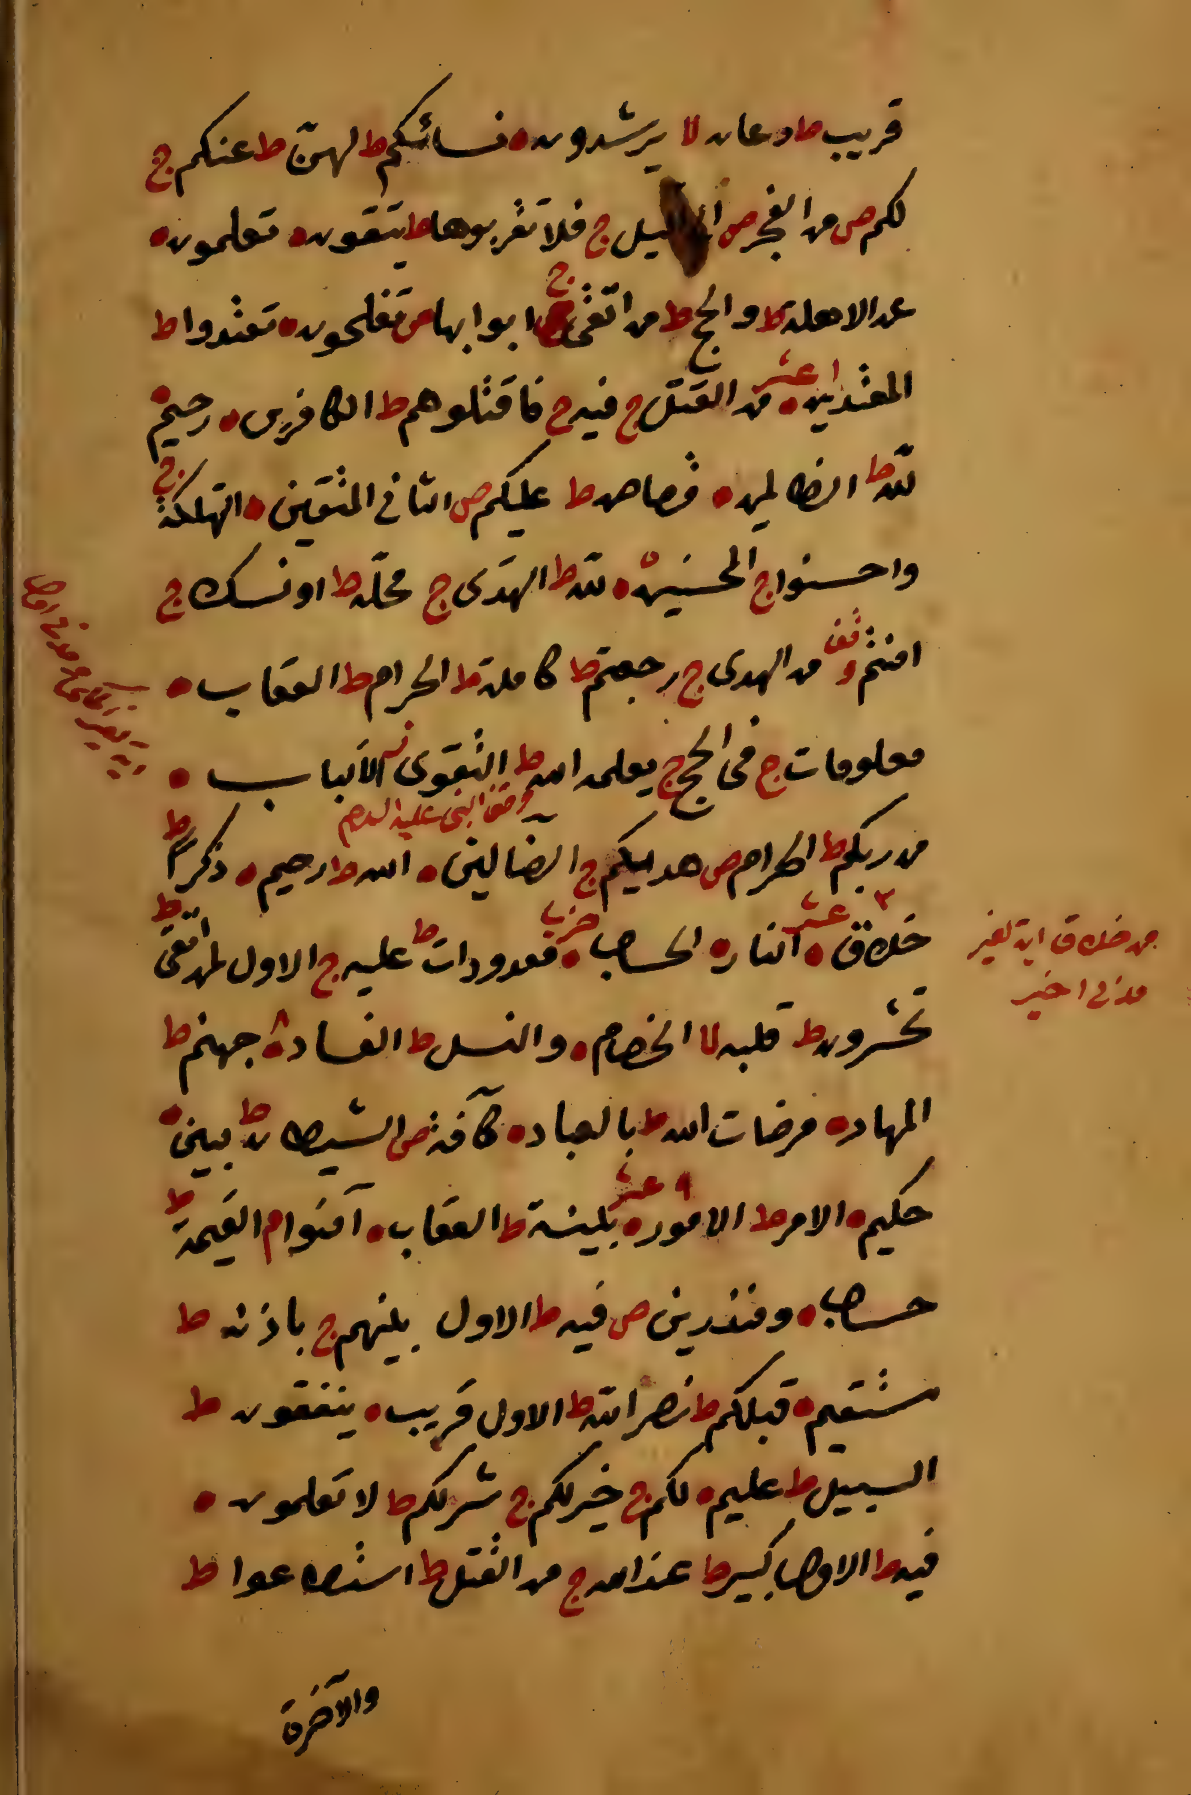 قريب ط دعان لا يرشدون ه نسائكم ط لهن ط عنكم ج
لكم ص من الفجر ص الى اليل ج فلا تقربوها ط يتقون ه تعلمون ه
عن الاهلة ط والحج ط من اتقى ج ابوابها ص تفلحون ه تعتدوا ط
المعتدين ه عشر من القتل ج فيه ج فاقتلوهم ط الكافرين ه رحيم ه
لله ط الظالمين ه قصاص ط عليكم ص الثاني المتقين ه التهلكة ج
واحسنوا ج المحسنين ه لله ط الهدى ج محله ط او نسك ج
امنتم وقف من الهدى ج رجعتم ط كاملة ط الحرام ط العقاب ه
معلومات ج في الحج ج يعلمه الله ط التقوى الألباب ه
وقف النبى عليه السلام
من ربكم ط الحرام ص هديكم ج الضالين ه الله ط رحيم ه ذكرا ط
خلاق ه عشر النار ه الحساب ه حزب معدودات ط عليه ج الاول لمن اتقى ط
من خلاق اية لغير
مدني اخير
تحشرون ط قلبه لا الخصام ه والنسل ط الفساد ه جهنم ط
المهاد ه مرضات الله ط بالعباد ه كآفة ص الشيطان ط مبين ه
حكيم ه الامر ط الامور ه عشر بينة ط العقاب ه آمنوا م القيمة ط
حساب ه ومنذرين ص فيه ط الاول بينهم ج باذنه ط
مستقيم ه قبلكم ط نصر الله ط الاول قريب ه ينفقون ط
السبيل ط عليم ه لكم ج خير لكم ج شر لكم ط لا تعلمون ه
فيه ط الاول كبير ط عند الله ج من القتل ط استطاعوا ط
والآخرة